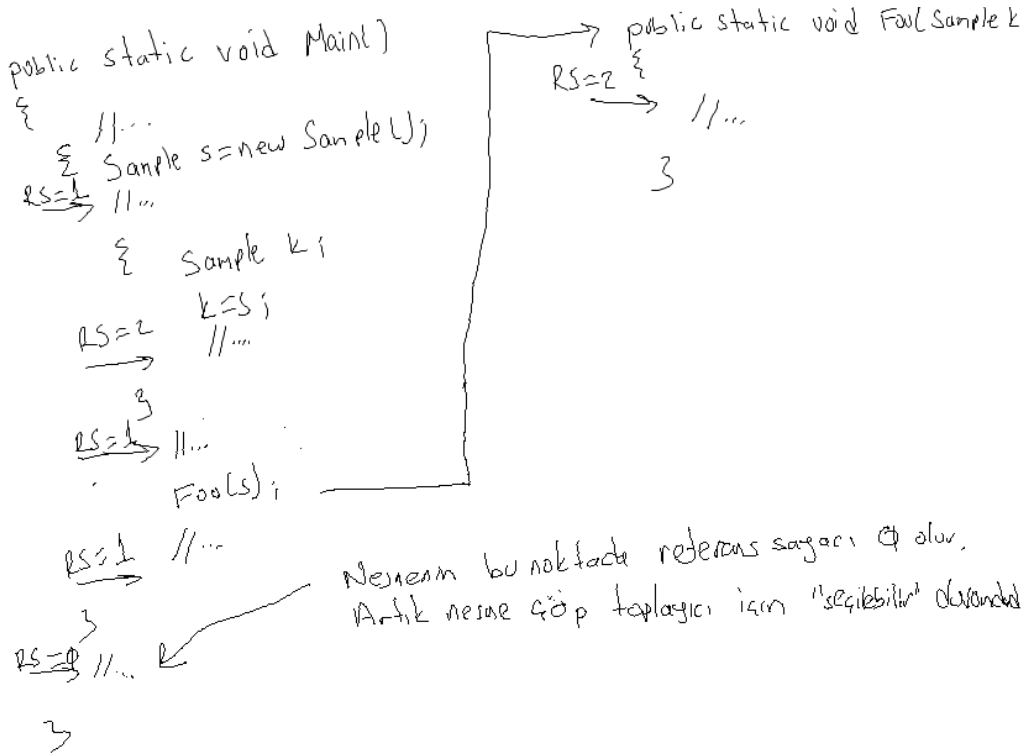 public static void Main()
{
//...
{ Sample s=new Sample();
RS=1 //...
{ Sample k;
k=s;
RS=2 //...
}
RS=1 //...
Foo(s);
RS=1 //...
}
RS=0 //...
}
public static void Foo(Sample k
{
RS=2 //...
}
Nesnenin bu noktada referans sayacı 0 olur.
Artık nesne çöp toplayıcı için "seçilebilir" durumdad